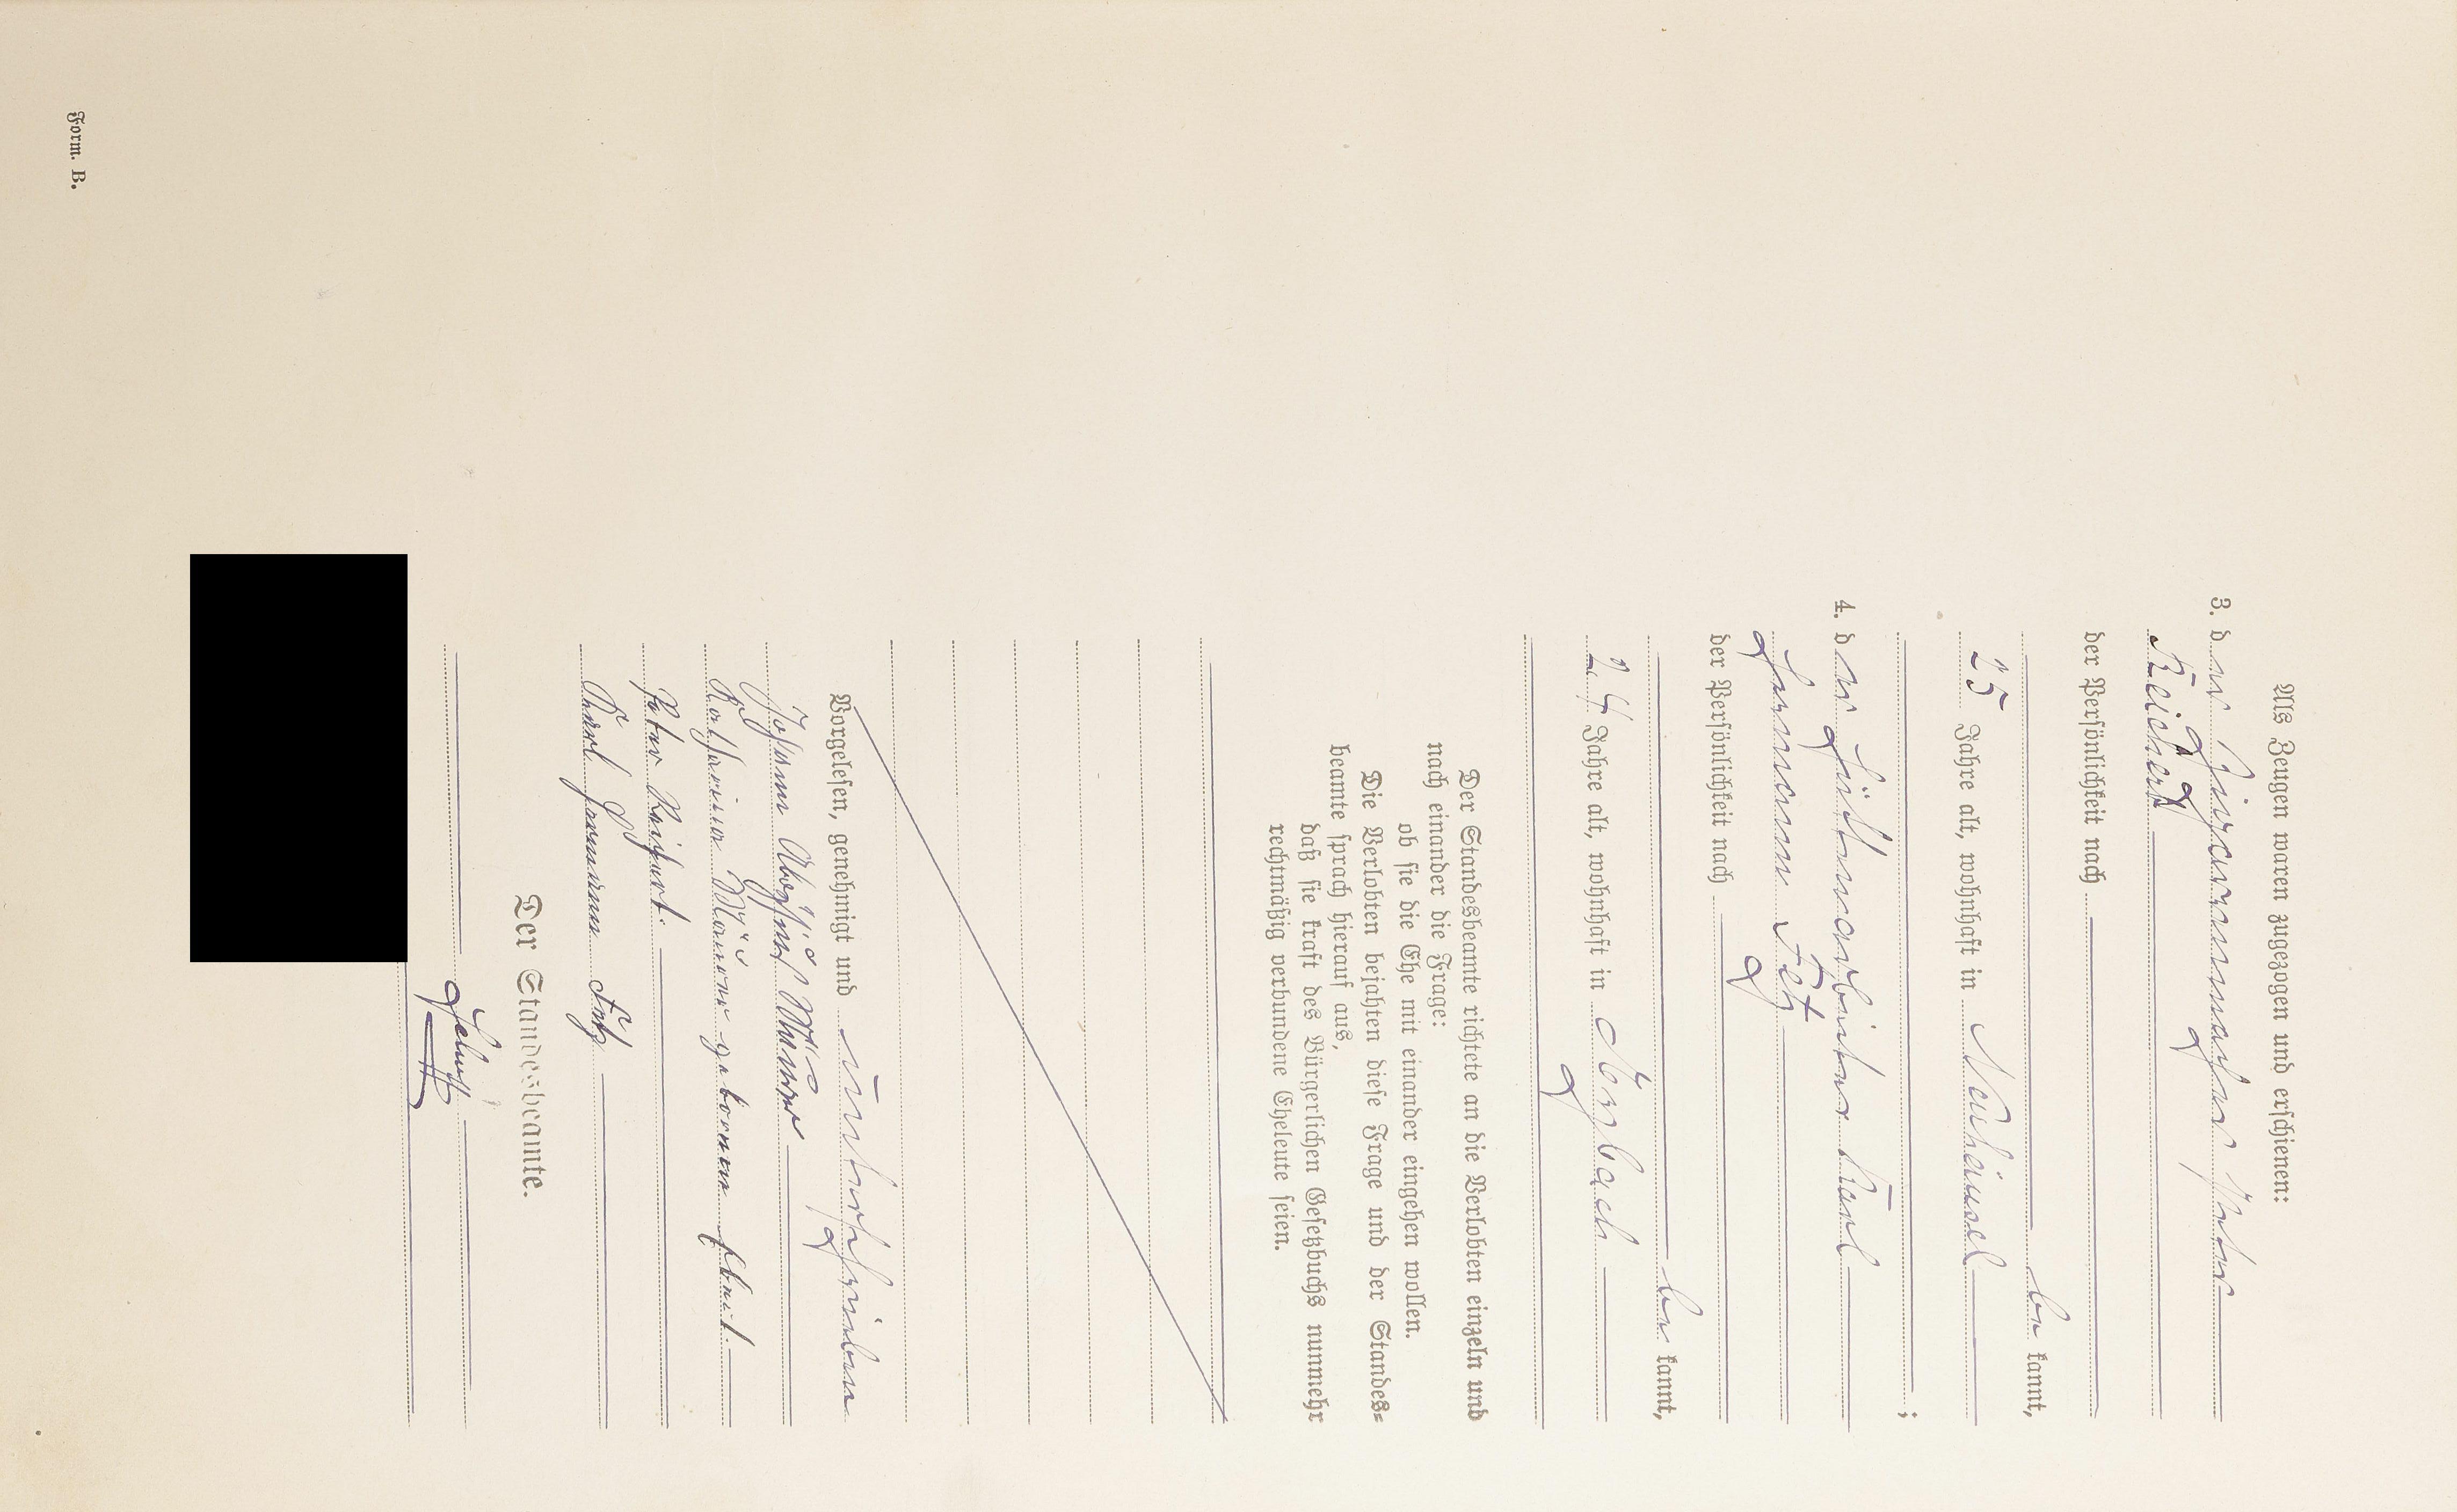 Als Zeugen waren zugezogen und erschienen:
3. der Zigarrenmacher Peter
Reichert
der Persönlichkeit nach
be kannt,
25 Jahre alt, wohnhaft in Neuhäusel
;
4. der Hüttenarbeiter Karl
Hermann Fetz
der Persönlichkeit nach
be kannt,
24 Jahre alt, wohnhaft in
Der Standesbeamte richtete an die Verlobten einzeln und
nach einander die Frage:
ob sie die Ehe mit einander eingehen wollen.
Die Verlobten bejahten diese Frage und der Standes=
beamte sprach hierauf aus,
daß sie kraft des Bürgerlichen Gesetzbuchs nunmehr
rechtmäßig verbundene Eheleute seien.
Vorgelesen, genehmigt und unterschrieben
Johann
Katharina geborene
Peter Reichert.
Karl Hermann Fetz
Der Standesbeamte.
Form. B.